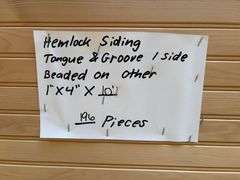 Hemlock Siding
Tongue & Groove 1 side
Beaded on other
1" X 4" X 10'
196 Pieces